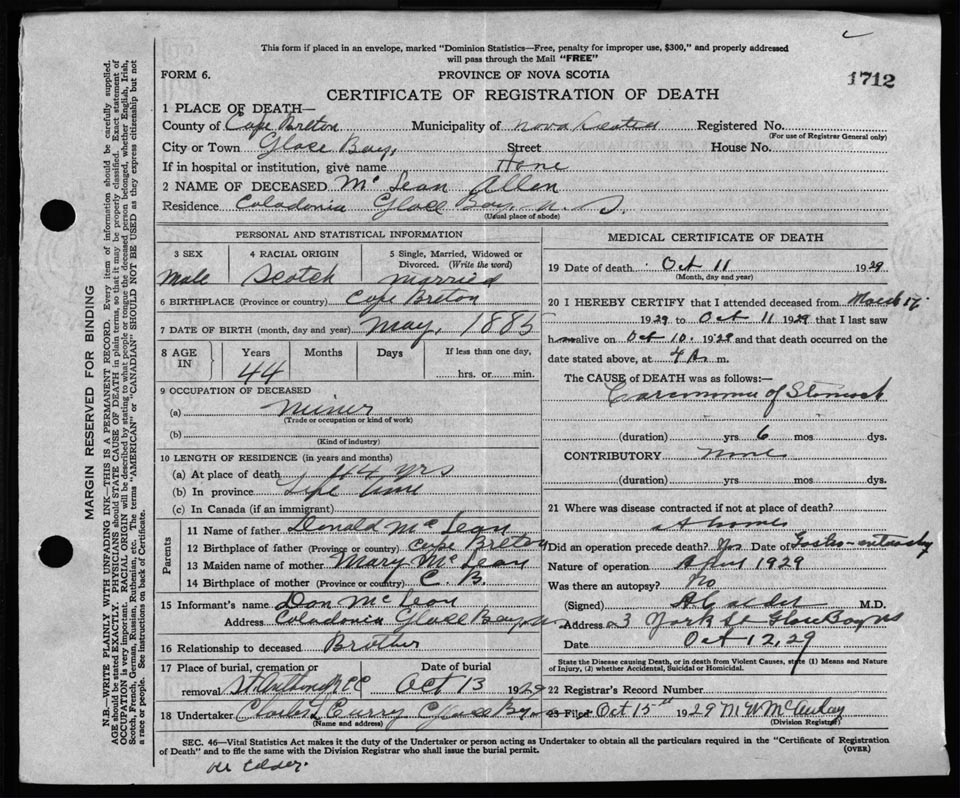 This form if placed in an envelope, marked "Dominion Statistics—Free, penalty for improper use, $300," and properly addressed
will pass through the Mail "FREE"
FORM 6.
PROVINCE OF NOVA SCOTIA
1712
CERTIFICATE OF REGISTRATION OF DEATH
1 PLACE OF DEATH—
County of Cape Breton Municipality of Nova Scotia Registered No.
(For use of Registrar General only)
City or Town Glace Bay, Street House No.
If in hospital or institution, give name Home
2 NAME OF DECEASED Mc Lean Allan
Residence Caladonia Glace Bay N. S.
(Usual place of abode)
PERSONAL AND STATISTICAL INFORMATION
3 SEX Male
4 RACIAL ORIGIN Scotch
5 Single, Married, Widowed or Divorced. (Write the word) married
6 BIRTHPLACE (Province or country) Cape Breton
7 DATE OF BIRTH (month, day and year) May, 1885
8 AGE IN Years 44 Months Days If less than one day, hrs. or min.
9 OCCUPATION OF DECEASED
(a) Miner
(Trade or occupation or kind of work)
(b)
(Kind of industry)
10 LENGTH OF RESIDENCE (in years and months)
(a) At place of death 44 yrs
(b) In province Life time
(c) In Canada (if an immigrant)
Parents
11 Name of father Donald Mc Lean
12 Birthplace of father (Province or country) Cape Breton
13 Maiden name of mother Mary Mc Lean
14 Birthplace of mother (Province or country) C. B.
15 Informant's name Dan Mc Lean
Address Caladonia Glace Bay
16 Relationship to deceased Brother
17 Place of burial, cremation or removal St Anthony
Date of burial Oct 13 1929
18 Undertaker Curry Glace Bay
(Name and address)
MEDICAL CERTIFICATE OF DEATH
19 Date of death Oct 11 1929
(Month, day and year)
20 I HEREBY CERTIFY that I attended deceased from March
1929 to Oct 11 1929 that I last saw
alive on Oct 10. 1929 and that death occurred on the
date stated above, at 4 A m.
The CAUSE of DEATH was as follows:—
Carcinoma of Stomach
(duration) yrs 6 mos dys.
CONTRIBUTORY None
(duration) yrs. mos. dys.
21 Where was disease contracted if not at place of death?
At home
Did an operation precede death? Yes Date of
Nature of operation April 1929
Was there an autopsy? No
(Signed) M.D.
Address 3 York St Glace Bay NS
Date Oct 12, 29
State the Disease causing Death, or in death from Violent Causes, state (1) Means and Nature
of Injury, (2) whether Accidental, Suicidal or Homicidal.
22 Registrar's Record Number
23 Filed Oct 15th 1929
(Division Registrar)
SEC. 46—Vital Statistics Act makes it the duty of the Undertaker or person acting as Undertaker to obtain all the particulars required in the "Certificate of Registration
of Death" and to file the same with the Division Registrar who shall issue the burial permit.
(OVER)
MARGIN RESERVED FOR BINDING
N.B.—WRITE PLAINLY WITH UNFADING INK—THIS IS A PERMANENT RECORD. Every item of information should be carefully supplied.
AGE should be stated EXACTLY. PHYSICIANS should STATE CAUSE OF DEATH in plain terms, so that it may be properly classified. Exact statement of
OCCUPATION is very important. RACIAL ORIGIN will be described by stating to what people or tongue the deceased person belonged, whether English, Irish,
Scotch, French, German, Russian, Ruthenian, etc. The terms "AMERICAN" or "CANADIAN" SHOULD NOT BE USED as they express citizenship but not
a race or people. See instructions on back of Certificate.